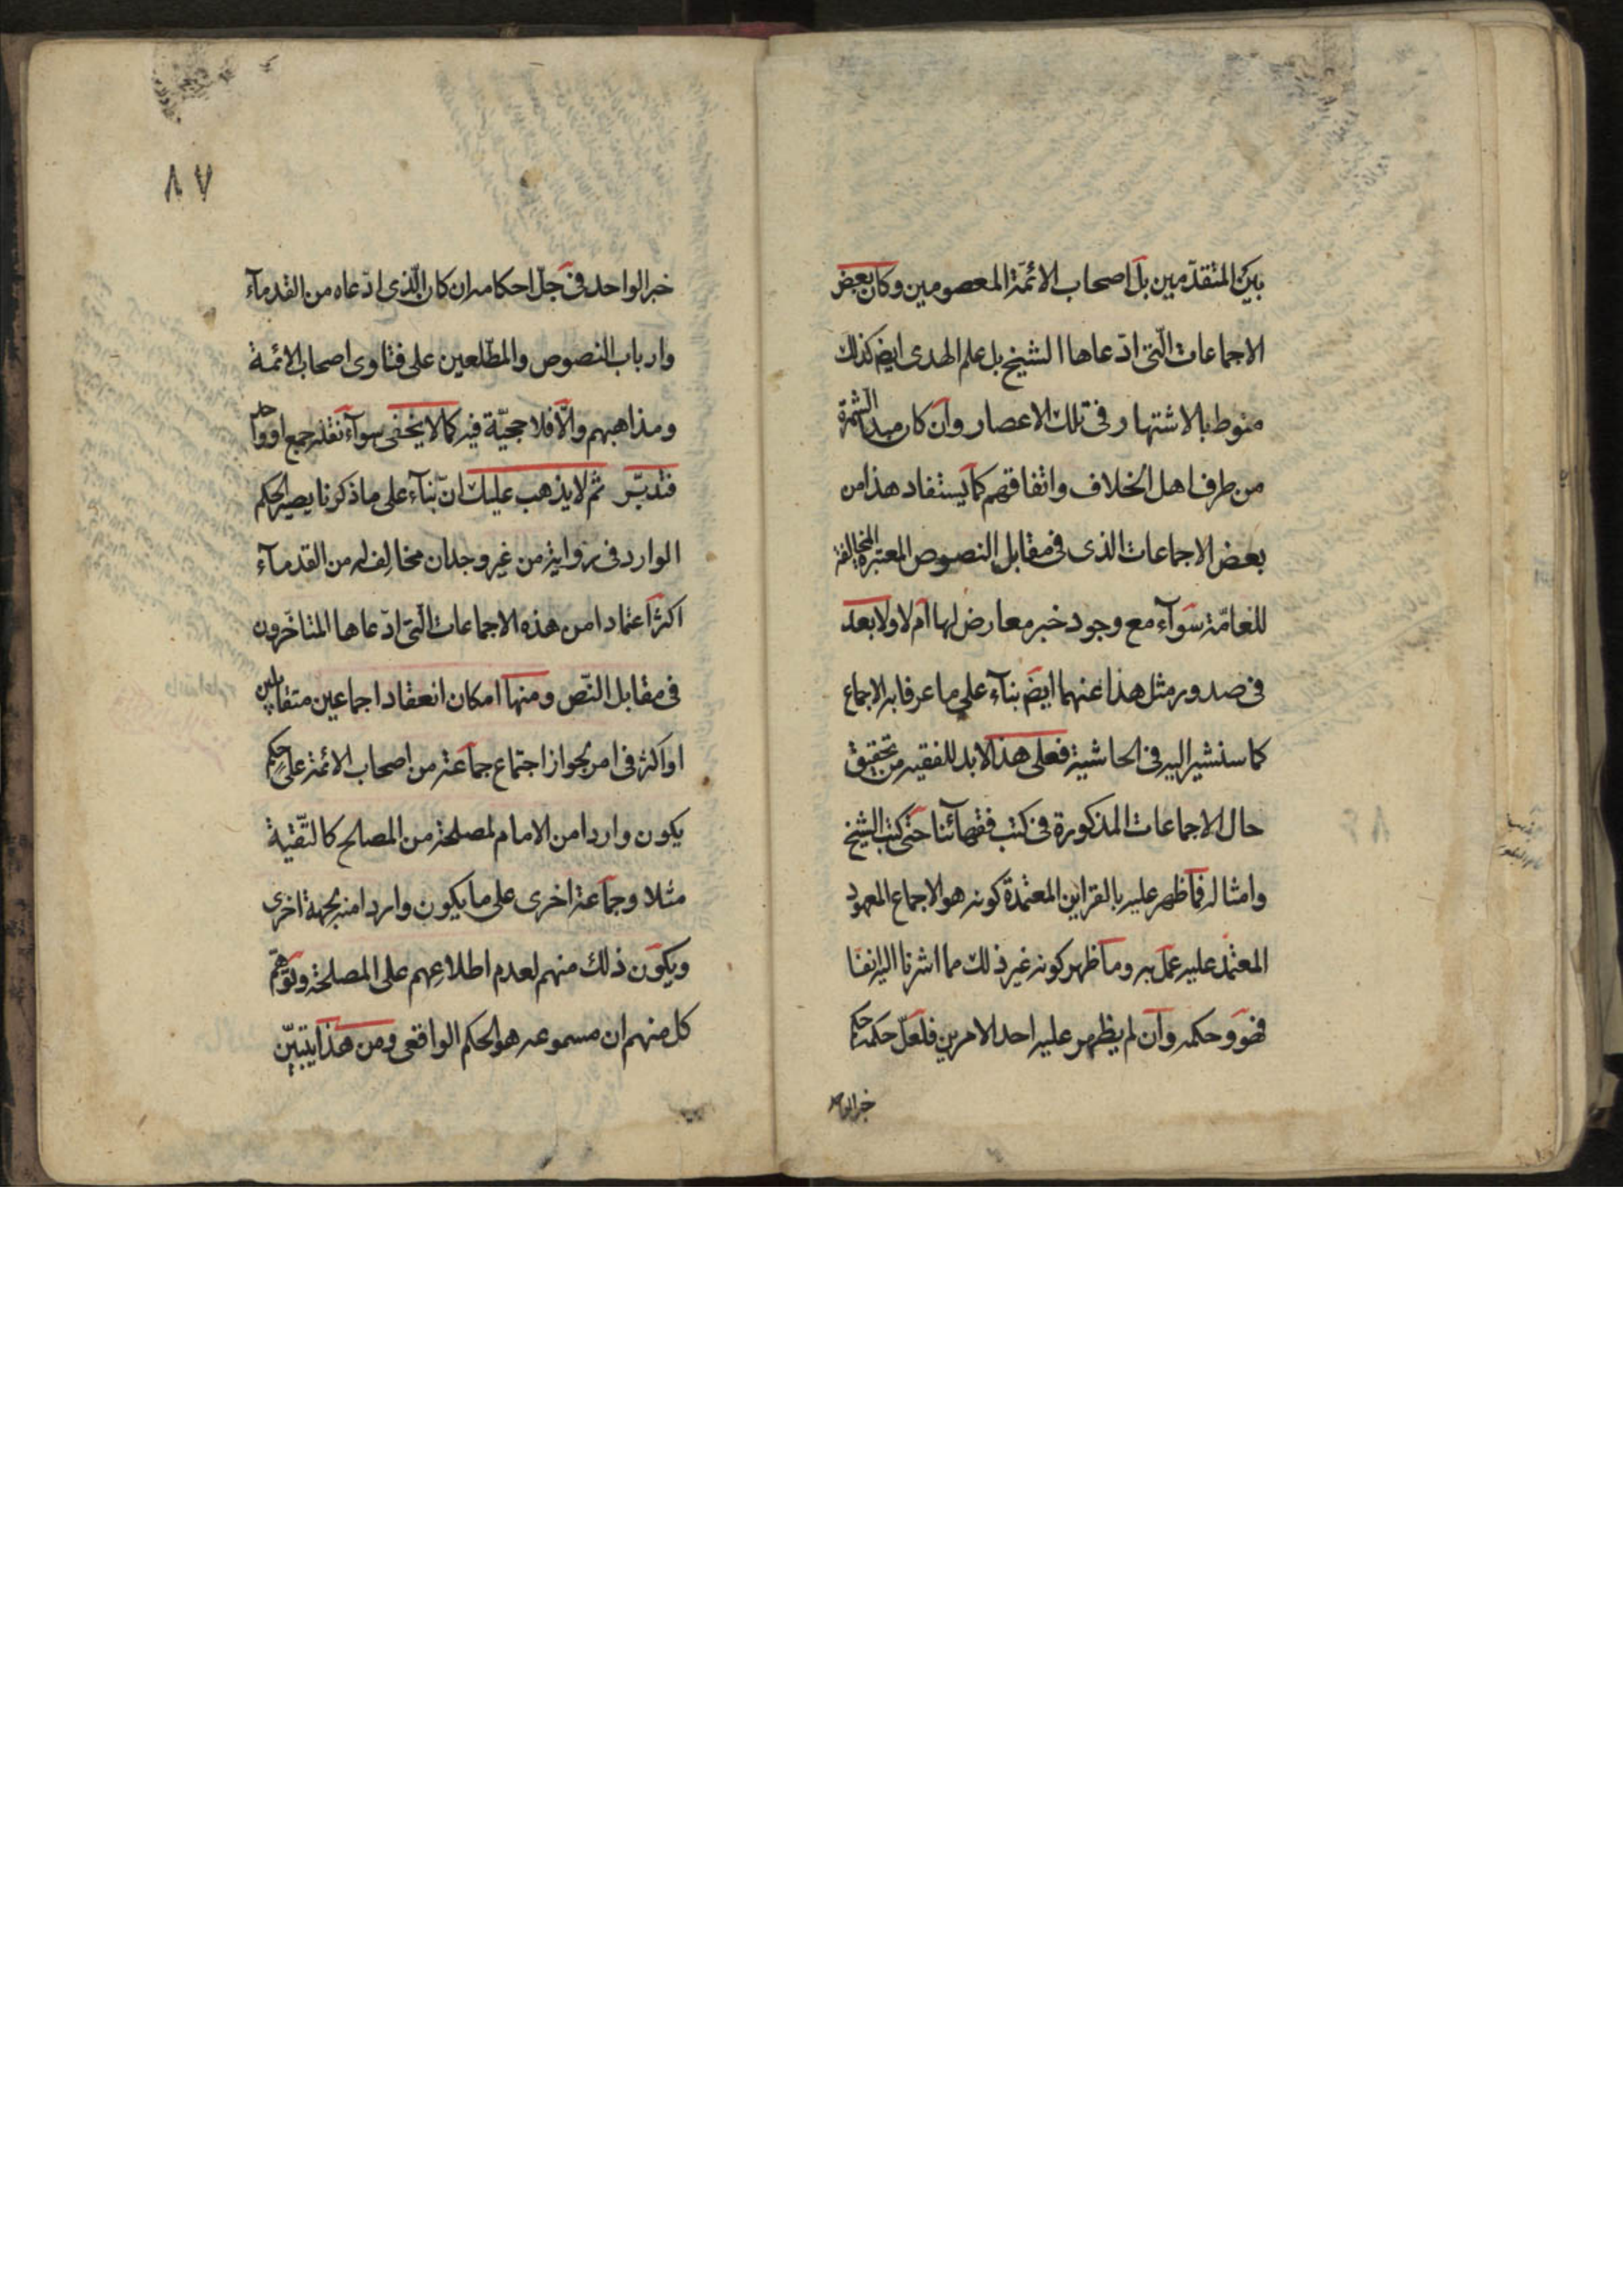 بين المتقدّمين بل اصحاب الائمّة المعصومين وكان بعض
الاجماعات الّتى ادّعاها الشيخ بل علم الهدى ايض كذلك
منوط بالاشتهار فى تلك الاعصار وان كان مبدا الشهرة
من طرف اهل الخلاف واتفاقهم كما يستفاد هذا من
بعض الاجماعات الذى فى مقابل النصوص المعتبرة المخالفة
للعامّة سوآء مع وجود خبر معارض لها ام لا ولا بعد
فى صدور مثل هذا عنهما ايضَ بنآء على ما عرفا به الاجماع
كما سنشير اليه فى الحاشية فعلى هذا لابد للفقيه من تحقيق
حال الاجماعات المذكورة فى كتب فقهائنا حتى كتب الشيخ
وامثاله فما ظهر عليه بالقراين المعتمدة كونه هو الاجماع المعهود
المعتمد عليه عمل به وما ظهر كونه غير ذلك مما اشرنا اليه انفا
فهو وحكمه وان لم يظهر عليه احد الامرين فلعلّ حكمه حكم
خبر الواحد
٨٧
خبر الواحد فى جلّ احكامه ان كان الّذى ادّعاه من القدمآء
وارباب النصوص والمطّلعين على فتاوى اصحاب الائمة
ومذاهبهم والّا فلا حجيّة فيه كما لا يخفى سوآء نقله جمع او واحد
فتدبّر ثم لا يذهب عليك انّ بنآء على ما ذكرنا يصير الحكم
الوارد فى رواية من غير وجدان مخالف له من القدمآء
اكثر اعتمادا من هذه الاجماعات الّتى ادّعاها المتاخّرون
فى مقابل النّص ومنها امكان انعقاد اجماعين متقابلين
او اكثر فى امر بجواز اجتماع جماعة من اصحاب الائمة على حكم
يكون واردا من الامام لمصلحة من المصالح كالتّقية
مثلا وجماعة اخرى على ما يكون واردا منه بجهة اخرى
ويكون ذلك منهم لعدم اطلاعهم على المصلحة وتوهّم
كل منهم ان مسموعه هو الحكم الواقعى ومن هذا يتبيّن